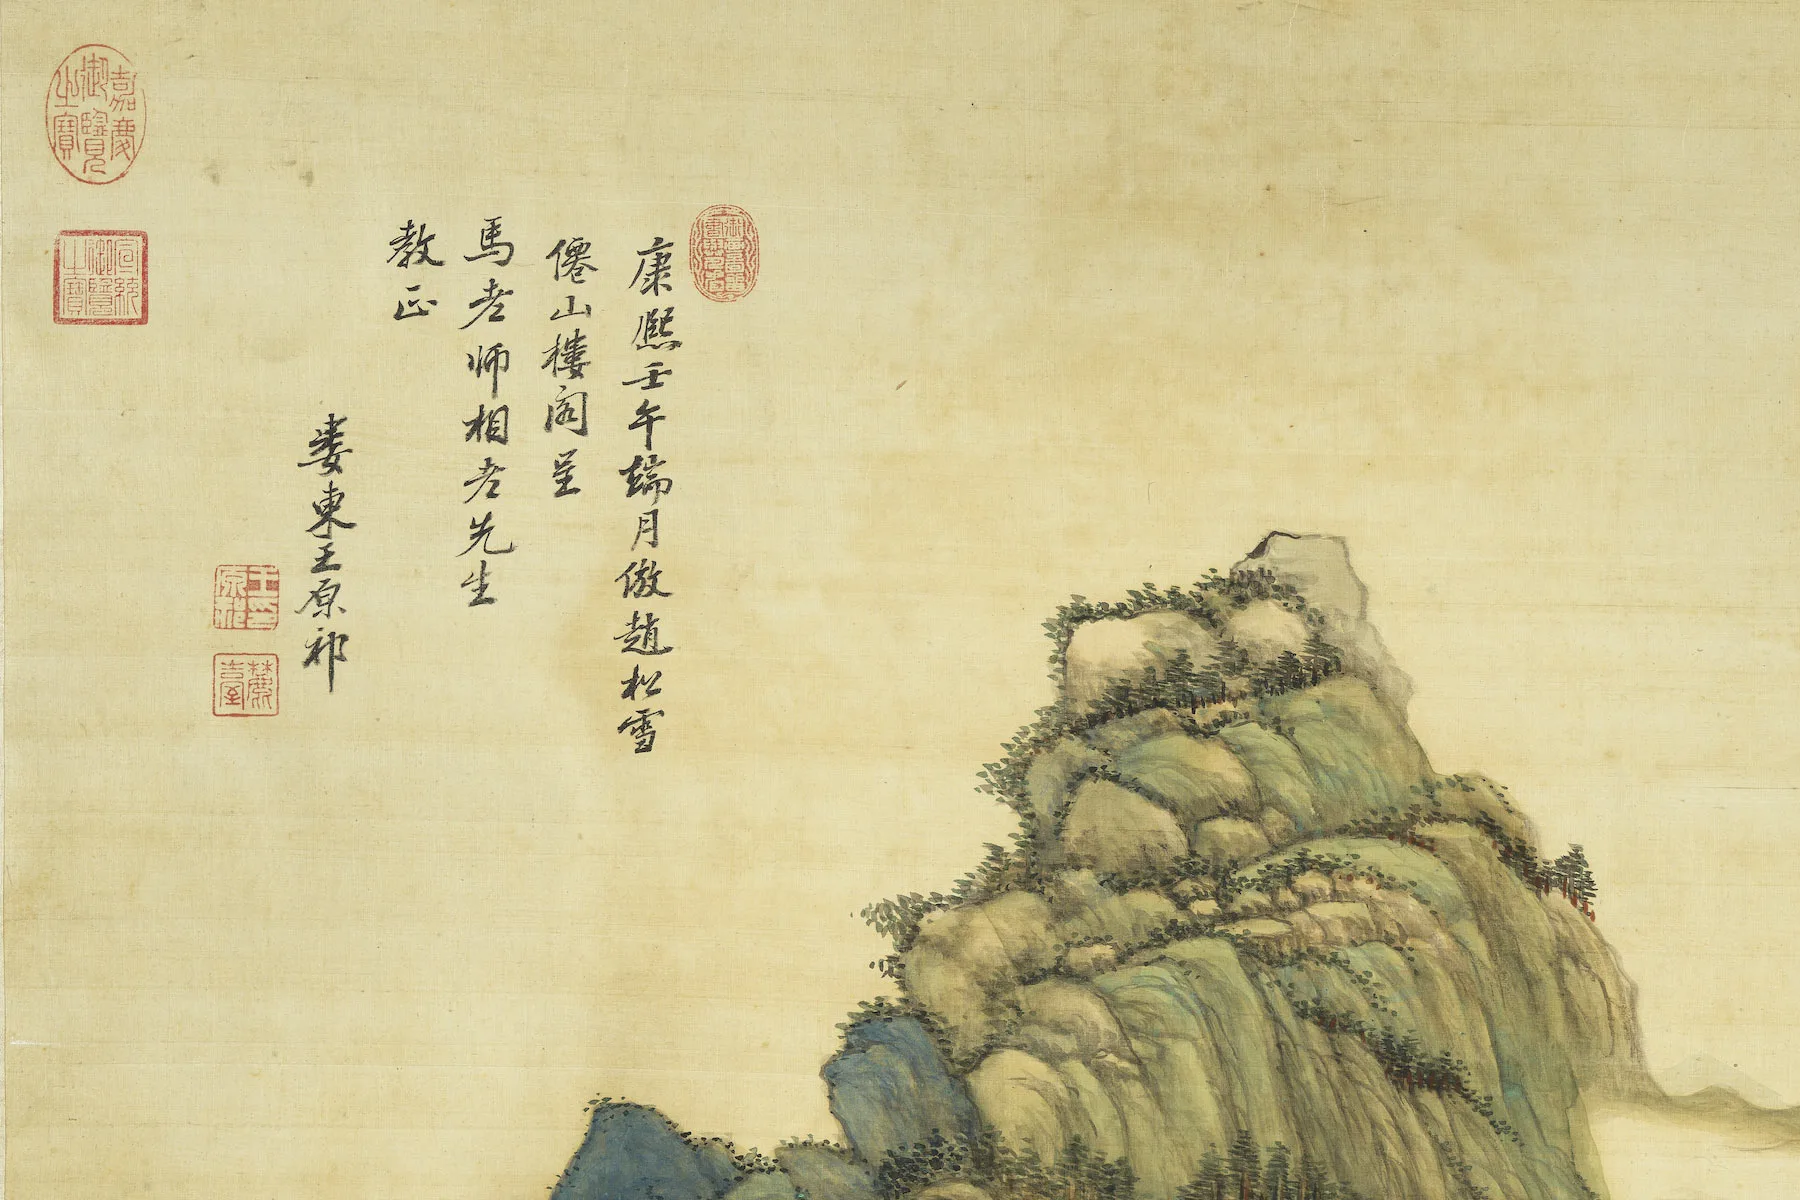 康熙壬午端月倣趙松雪
僊山樓閣呈
馬老師相老先生
教正
婁東王原祁
嘉慶御覽之寶
宣統御覽之寶
王原祁印
麓臺